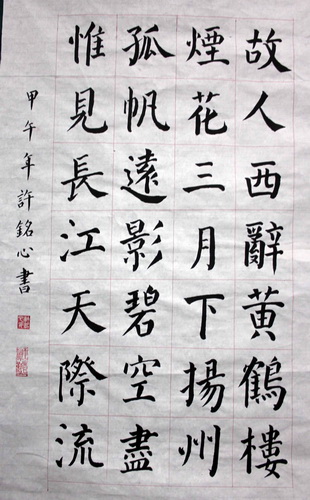 故人西辭黃鶴樓
煙花三月下揚州
孤帆遠影碧空盡
惟見長江天際流
甲午年許銘心書